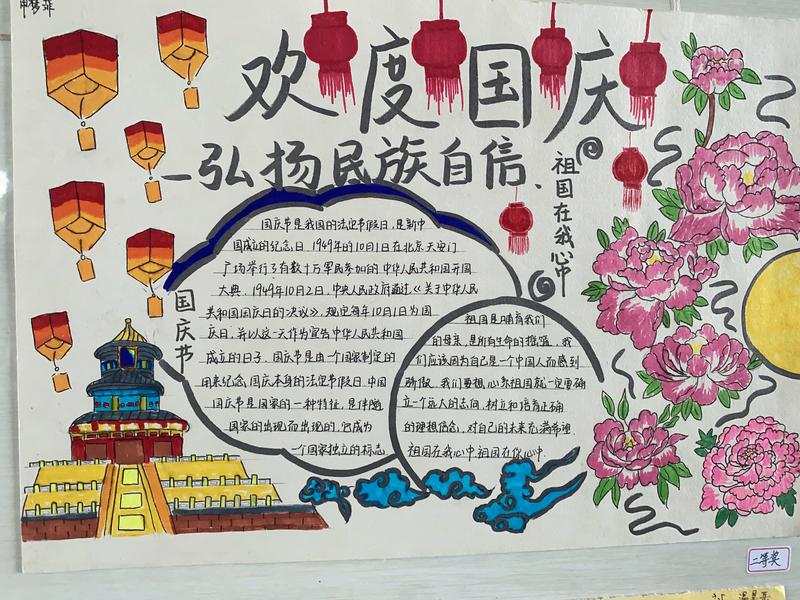 欢度国庆
—弘扬民族自信
祖国在我心中
国庆节
国庆节是我国的法定节假日,是新中
国成立的纪念日.1949年的10月1日在北京天安门
广场举行了有数十万军民参加的中华人民共和国开国
大典.1949年10月2日,中央人民政府通过《关于中华人民
共和国国庆日的决议》,规定每年10月1日为国
庆日,并以这一天作为宣告中华人民共和国
成立的日子.国庆节是由一个国家制定的
用来纪念国庆本身的法定节假日.中国
国庆节是国家的一种特征,是伴随
国家的出现而出现的,它成为
一个国家独立的标志
祖国是哺育我们
的母亲,是所有生命的摇篮,我
们应该因为自己是一个中国人而感到
骄傲.我们要想心系祖国就一定要确
立一个远大的志向,树立和培育正确
的理想信念,对自己的未来充满希望.
祖国在我心中,祖国在你心中.
二等奖